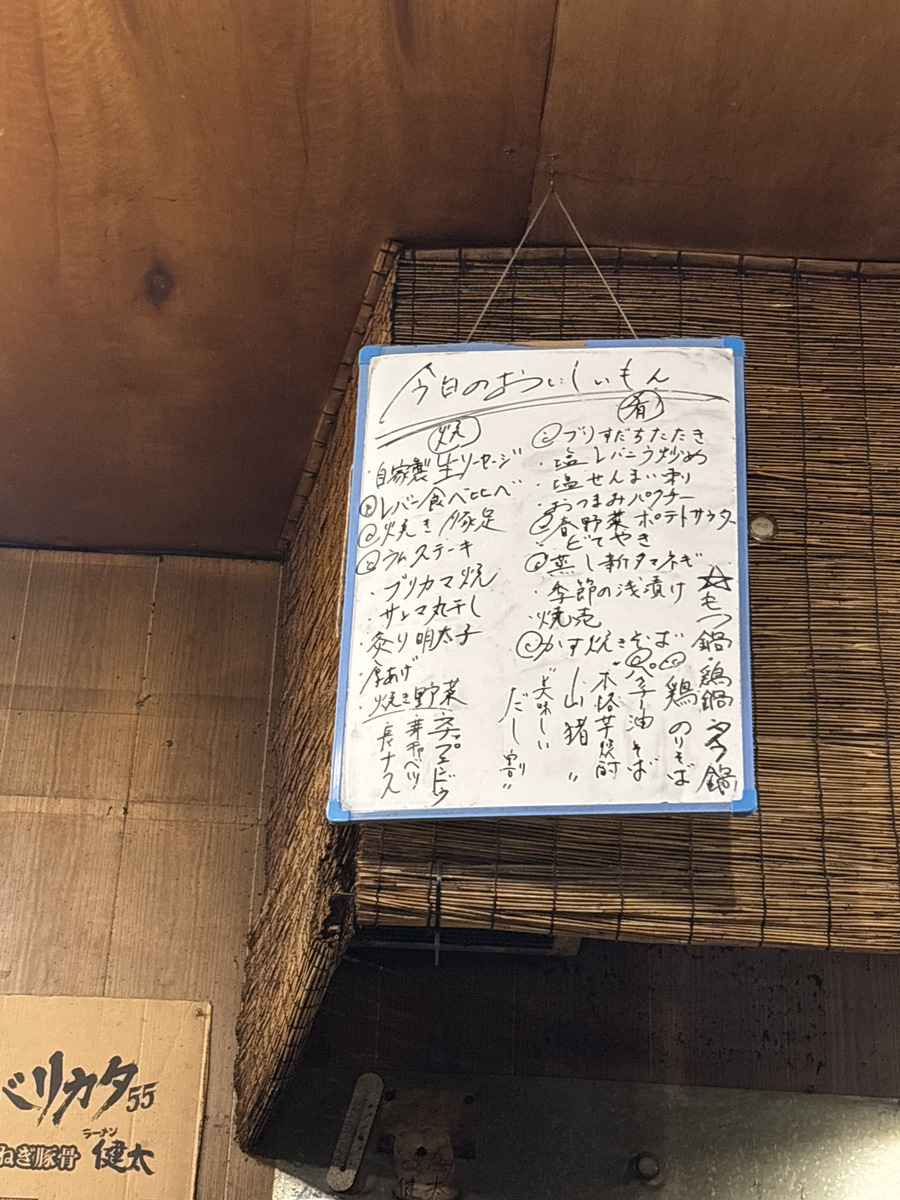 今日のおいしいもん
焼
・自家製生ソーセージ
レバー食べ比べ
焼き豚足
ラムステーキ
・ブリカマ焼
・サンマ丸干し
・炙り明太子
・厚あげ
・焼き野菜
長ナス
芽キャベツ
肴
ブリすだちたたき
・塩レバニラ炒め
・塩せんまい刺
・おつまみパクチー
春野菜ポテトサラダ
・どてやき
蒸し新タマネギ
・季節の浅漬け
・焼売
かす焼きそば
☆もつ鍋・鶏鍋
鶏のりそば
油そば
"本格芋焼酎
山猪"
"美味しい
だし割"
バリカタ55
ねぎ豚骨
ラーメン
健太
健太